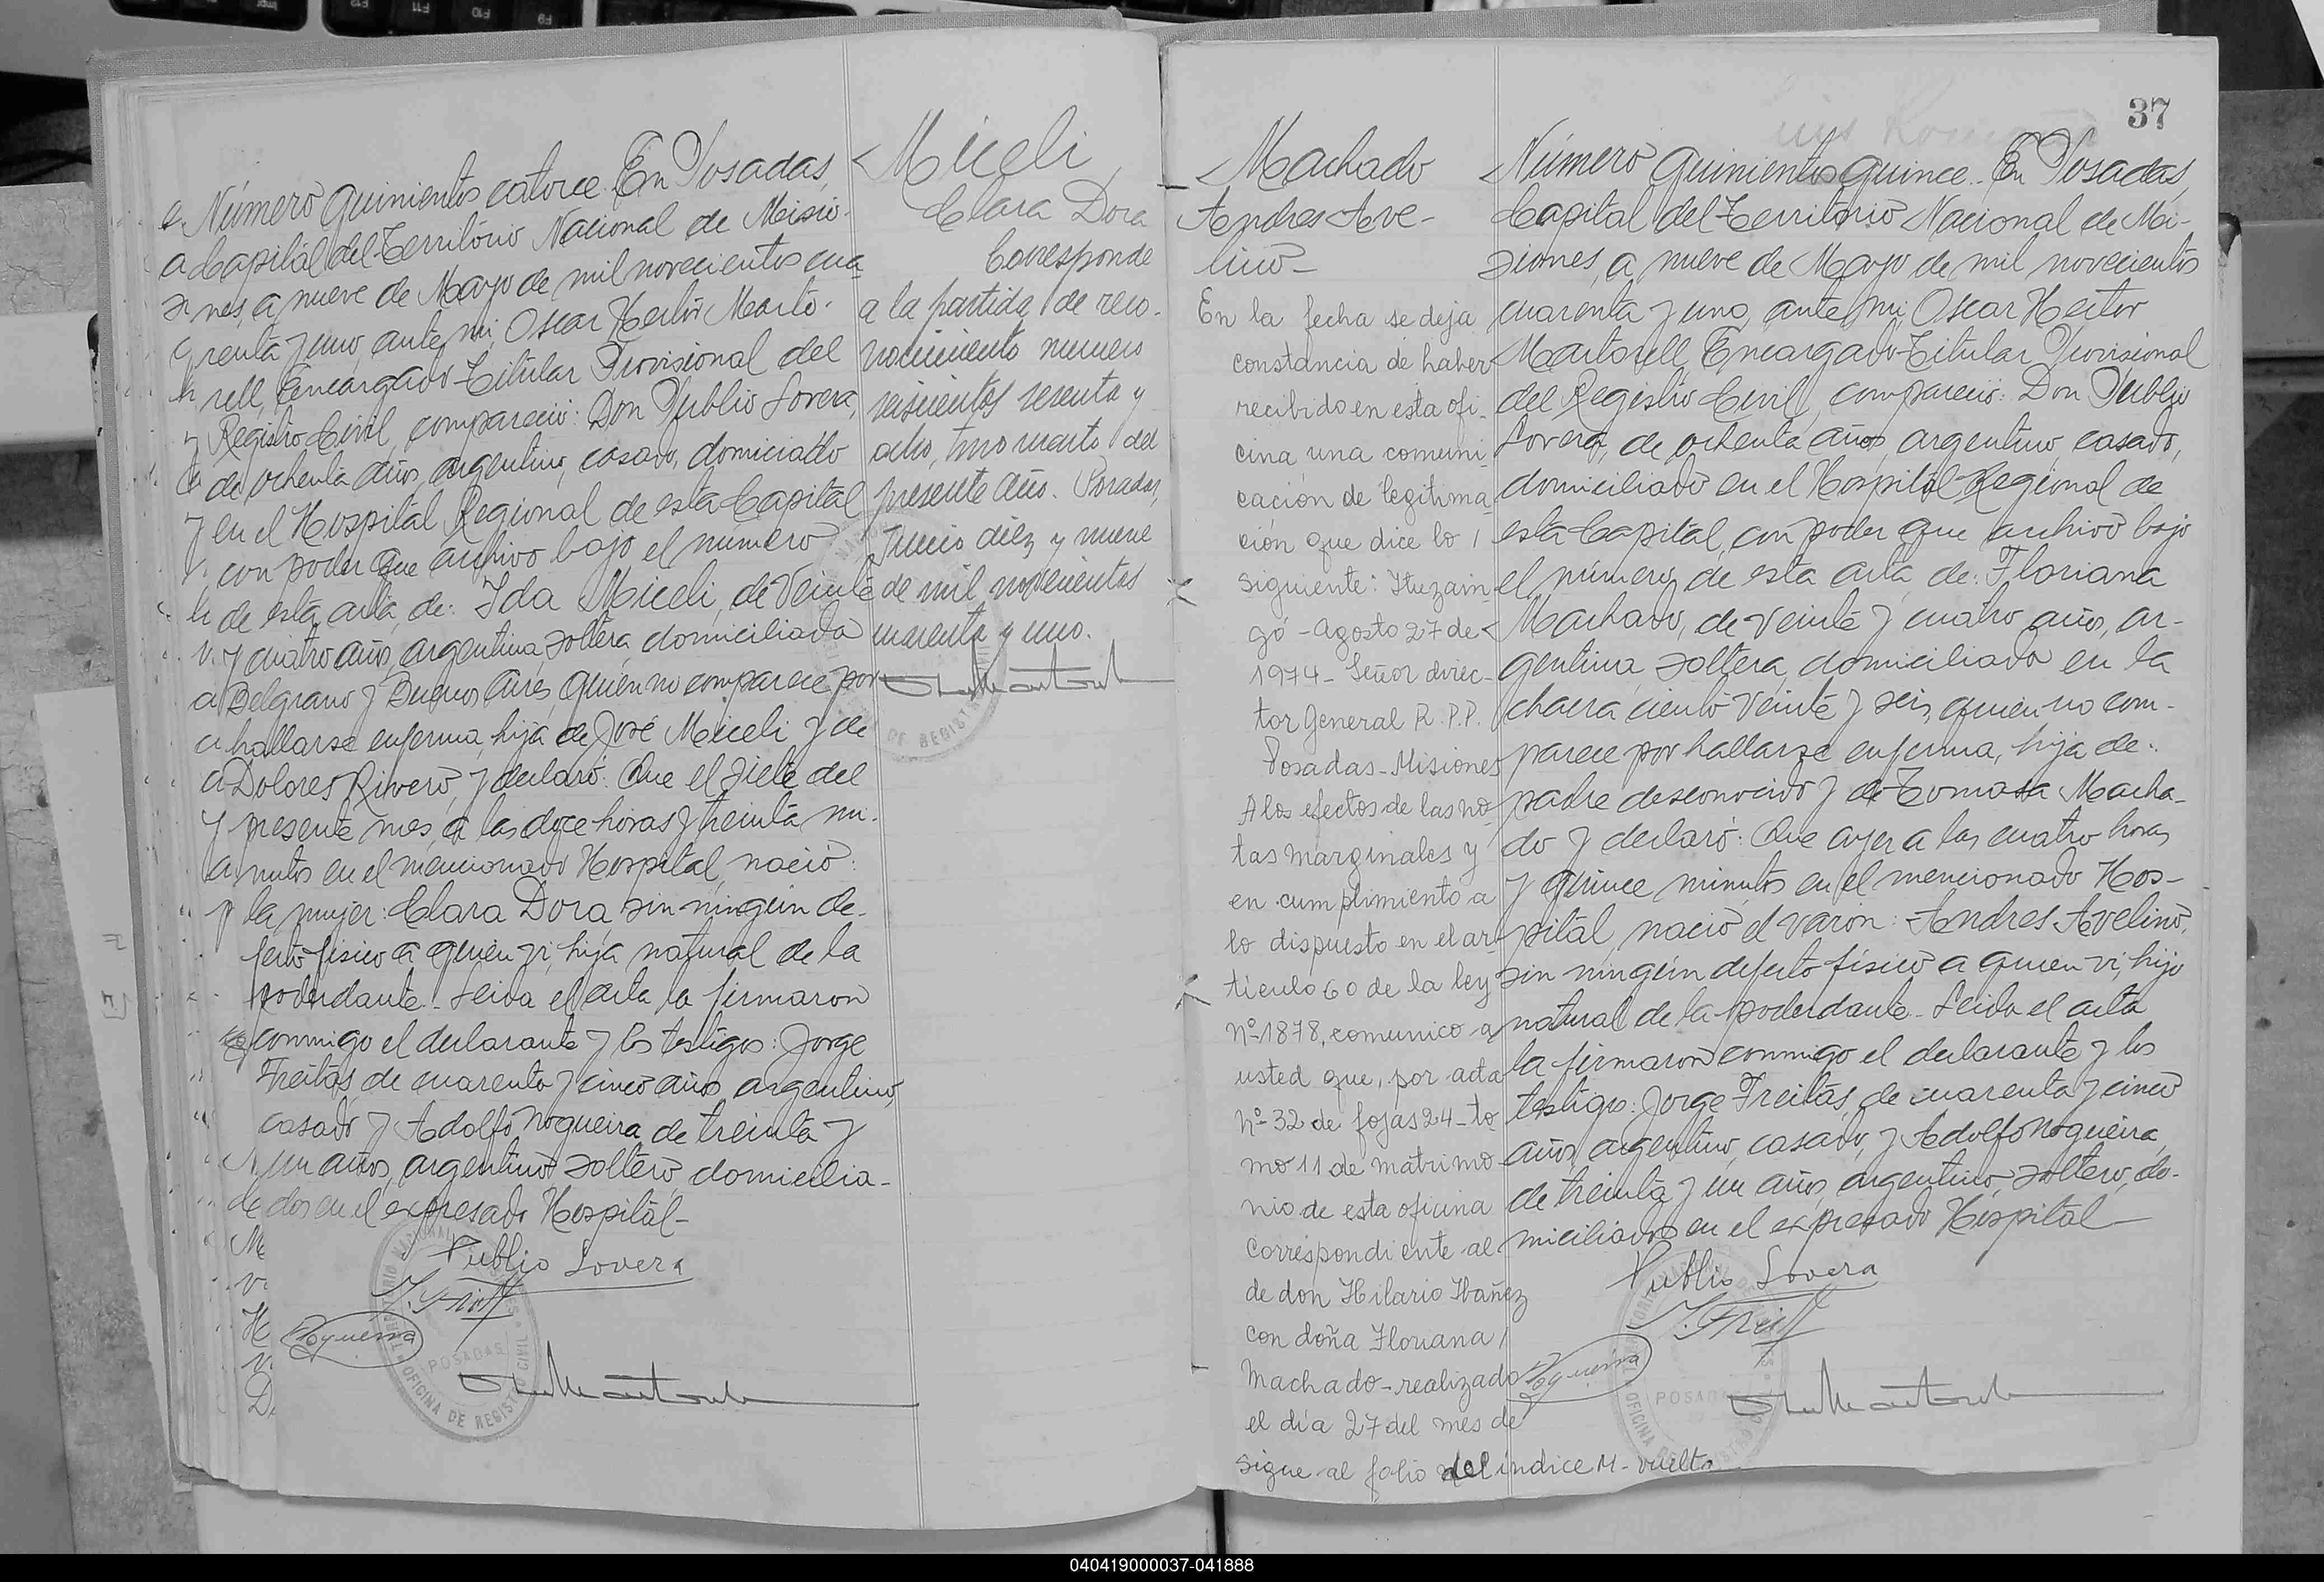 Número Quinientos catorce. En Posadas,
Capital del Territorio Nacional de Misio-
nes, a nueve de Mayo de mil novecientos cua
renta y uno, ante mi, Oscar Hector Marto-
rell, Encargado Titular Provisional del
Registro Civil, compareció: Don Publio Lovera,
de ochenta años, argentino, casado, domiciado
en el Hospital Regional de esta Capital
con poder que archivo bajo el numero
de esta acta, de: Ida Miceli, de veinte
y cuatro años, argentina, soltera, domiciliada
Belgrano y Buenos Aires, quien no comparece por
hallarse enferma, hija de José Miceli y de
Dolores Rivero, y declaró: Que el siete del
presente mes, a las doce horas y treinta mi-
nutos en el mencionado Hospital, nació:
la mujer: Clara Dora, sin ningún de-
fecto físico a quien vi, hija natural de la
poderdante. Leida el acta la firmaron
conmigo el declarante y los testigos: Jorge
Freitas, de cuarenta y cinco años, argentino,
casado y Adolfo Nogueira, de treinta y
un años, argentino, soltero, domicilia-
dos en el expresado Hospital-
Publio Lovera
Nogueira
TERRITORIO NACIONAL DE MISIONES
POSADAS
OFICINA DE REGISTRO CIVIL
Miceli
Clara Dora
Corresponde
a la partida de reco-
nocimiento numero
seiscientos sesenta y
ocho, tomo cuarto del
presente año. Posadas,
Junio diez y nueve
de mil novecientos
cuarenta y uno.
DE REGISTRO
37
Machado
Andres Ave-
lino-
En la fecha se deja
constancia de haber
recibido en esta ofi-
cina una comuni-
cación de legitima-
ción que dice lo
siguiente: Ituzain-
gó - Agosto 27 de
1974 - Señor direc-
tor General R.P.P.
Posadas - Misiones
A los efectos de las no-
tas marginales y
en cumplimiento a
lo dispuesto en el ar-
tículo 60 de la ley
Nº 1878, comunico a
usted que, por acta
Nº 32 de fojas 24 - to-
mo 11 de matrimo-
nio de esta oficina
correspondiente al
de don Hilario Ibañez
con doña Floriana
Machado - realizado
el día 27 del mes de
sigue al folio del indice M - vuelta
Número Quinientos quince. En Posadas,
Capital del Territorio Nacional de Mi-
siones, a nueve de Mayo de mil novecientos
cuarenta y uno, ante mi, Oscar Hector
Martorell, Encargado Titular Provisional
del Registro Civil, compareció: Don Publio
Lovera, de ochenta años, argentino, casado,
domiciliado en el Hospital Regional de
esta Capital, con poder que archivo bajo
el número de esta acta, de: Floriana
Machado, de veinte y cuatro años, ar-
gentina, soltera, domiciliada en la
chacra ciento veinte y seis, quien no com-
parece por hallarse enferma, hija de:
padre desconocido y de Tomasa Macha-
do y declaró: Que ayer a las cuatro horas
y quince minutos en el mencionado Hos-
pital, nació el varón: Andres Avelino,
sin ningún defecto físico a quien vi, hijo
natural de la poderdante. Leida el acta
la firmaron conmigo el declarante y los
testigos: Jorge Freitas, de cuarenta y cinco
años, argentino, casado, y Adolfo Nogueira,
de treinta y un años, argentino, soltero, do-
miciliados en el expresado Hospital-
Publio Lovera
Nogueira
POSADAS
040419000037-041888